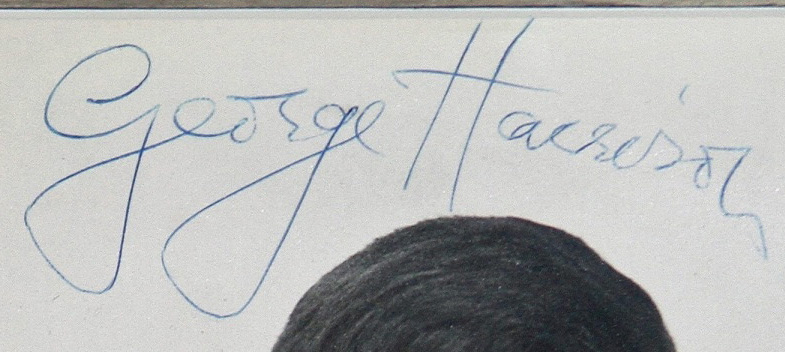 George Harrison